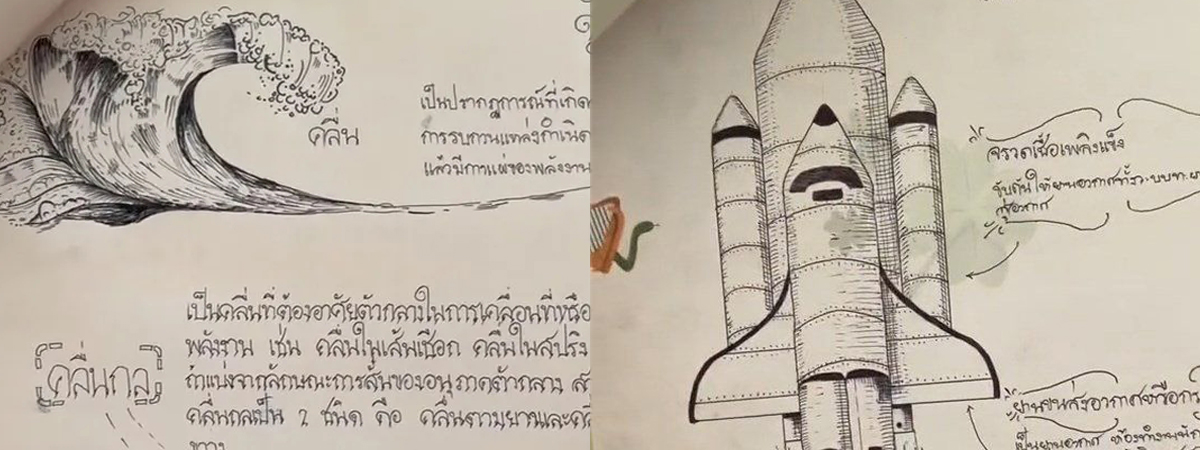 คลื่น
เป็นปรากฏการณ์ที่เกิด
การรบกวนแหล่งกำเนิด
แล้วมีการแผ่ของพลังงาน
คลื่นกล
เป็นคลื่นที่ต้องอาศัยตัวกลางในการเคลื่อนที่หรือ
พลังงาน เช่น คลื่นในเส้นเชือก คลื่นในสปริง
ถ้าแบ่งจากลักษณะการสั่นของอนุภาคตัวกลาง
คลื่นกลเป็น 2 ชนิด คือ คลื่นตามยาวและ
ขวาง
จรวดเชื้อเพลิงแข็ง
ขับดันให้ยานอวกาศทั้งระบบ
สู่อวกาศ
ยานขนส่งอวกาศหรือ
เป็นยานอวกาศ ห้องทำงานนัก